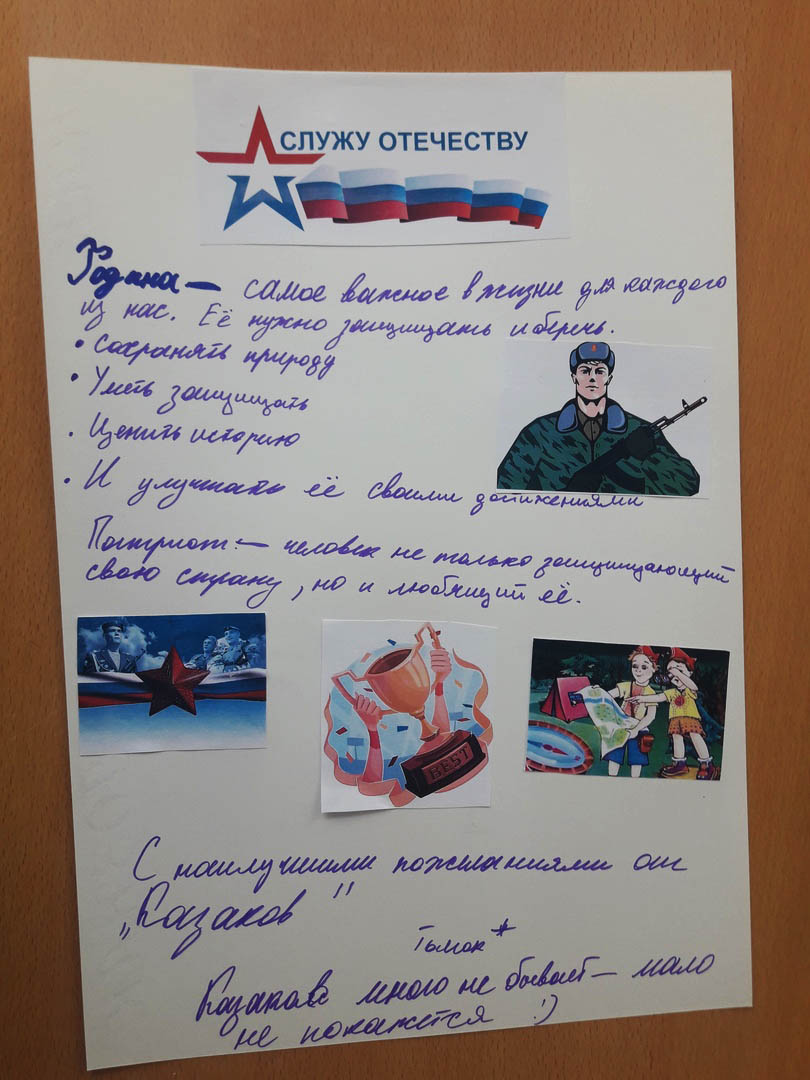 СЛУЖУ ОТЕЧЕСТВУ
Родина — самое важное в жизни для каждого
из нас. Её нужно защищать и беречь.
• Сохранять природу
• Уметь защищать
• Ценить историю
• И улучшать её своими достижениями
Патриот — человек не только защищающий
свою страну, но и любящий её.
BEST
С наилучшими пожеланиями от
„Казаков"
Казаков много не бывает — мало
не покажется :)